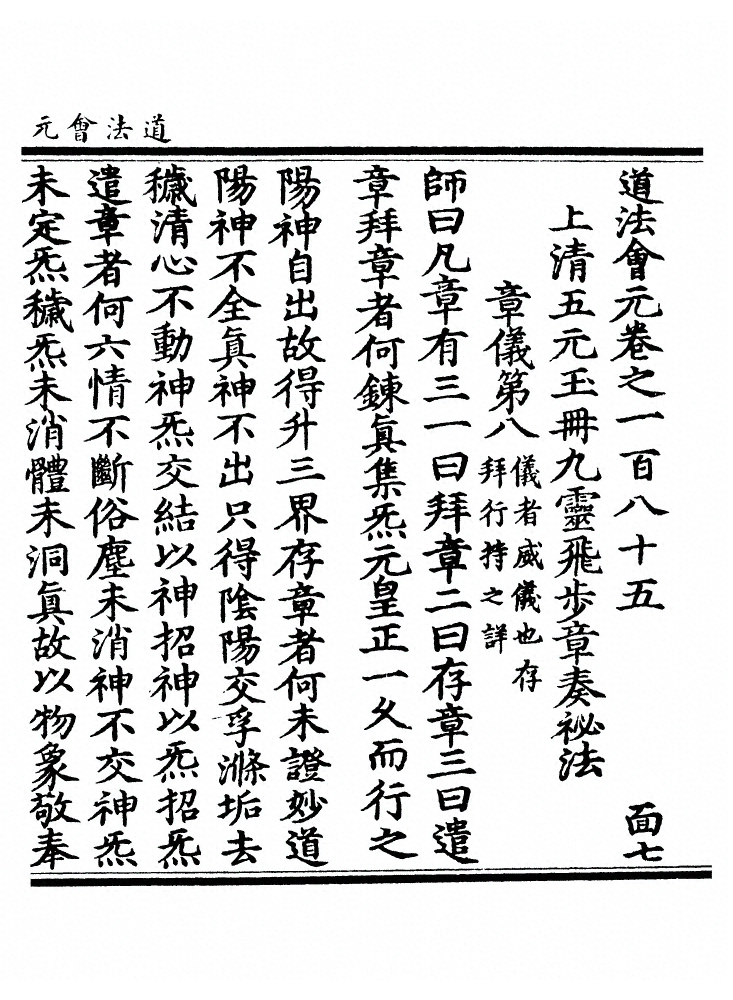 道法會元
道法會元卷之一百八十五 面七
上清五元玉冊九靈飛步章奏祕法
章儀第八 儀者威儀也存拜行持之詳
師曰凡章有三一曰拜章二曰存章三曰遣
章拜章者何鍊眞集炁元皇正一久而行之
陽神自出故得升三界存章者何未證妙道
陽神不全眞神不出只得陰陽交孚滌垢去
穢清心不動神炁交結以神招神以炁招炁
遣章者何六情不斷俗塵未消神不交神炁
未定炁穢炁未消體未洞眞故以物象敬奉